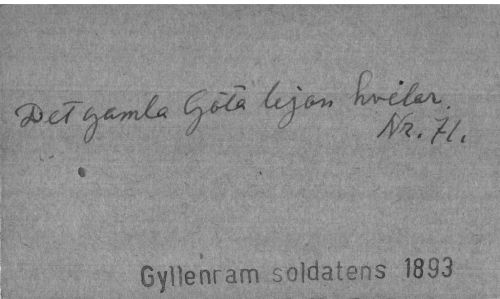 Det gamla Göta lejon hvilar.
Nr. 71.
Gyllenram soldatens 1893